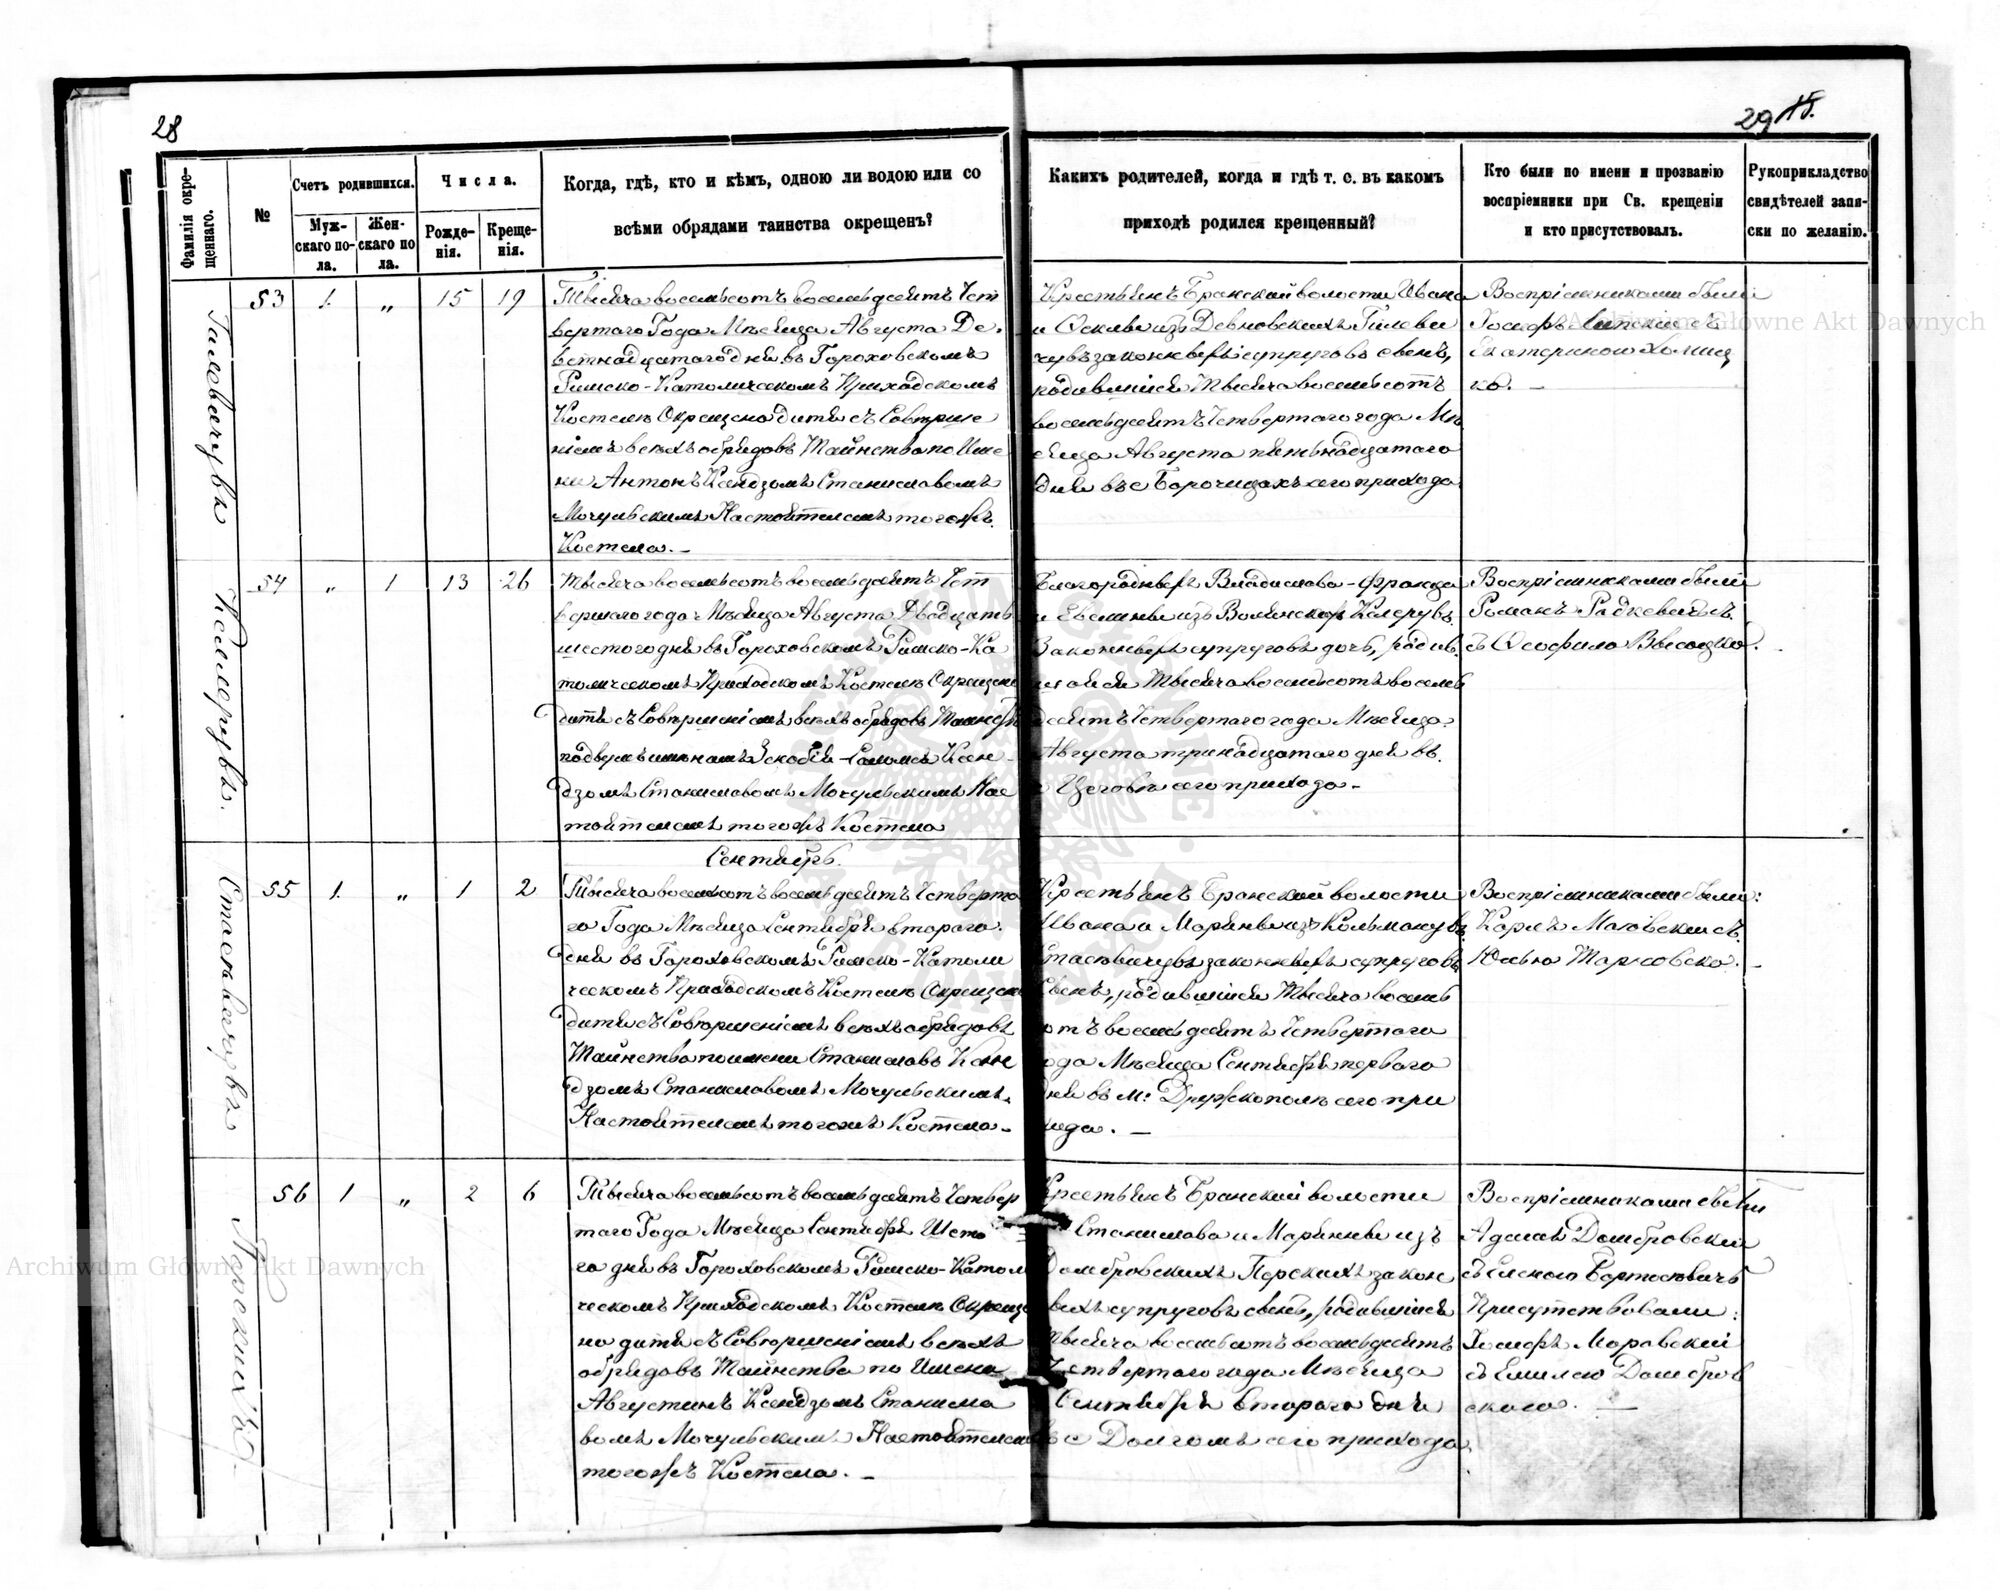 28
29 15.
Фамилія окре-
щеннаго.
№
Счетъ родившихся.
Муж-
скаго по-
ла.
Жен-
скаго по
ла.
Числа.
Рожде-
нія.
Креще-
нія.
Когда, гдѣ, кто и кѣмъ, одною ли водою или со
всѣми обрядами таинства окрещенъ?
Какихъ родителей, когда и гдѣ т. е. въ какомъ
приходѣ родился крещенный?
Кто были по имени и прозванію
воспріемники при Св. крещеніи
и кто присутствовалъ.
Рукоприкладство
свидѣтелей запи-
ски по желанію.
53 1. „ 15 19
Тысяча восемьсотъ восемьдесятъ Чет
вертаго Года Мѣсяца Августа Де-
вятнадцатаго дня въ Гороховскомъ
Римско-Католическомъ Приходскомъ
Костелѣ Окрещено дитя съ Соверше
ніемъ всѣхъ обрядовъ Таинства по Име
ни Антонъ Ксендзомъ Станиславомъ
Мочульскимъ Настоятелемъ тогожъ
Костела. –
Крестьянъ Бранской волости Ивана
законныхъ супруговъ сынъ,
родившійся Тысяча восемьсотъ
восемьдесятъ Четвертаго года Мѣ
сяца Августа пятьнадцатаго
дня въ с Борочицахъ сего прихода
Воспріемниками были
Іосифъ Липскій съ
Екатериною Хомиц
ко. –
54 „ 1 13 26
Тысяча восемьсотъ восемьдесятъ Чет
вертаго года Мѣсяца Августа Двадцать
шестого дня въ Гороховскомъ Римско-Ка
толическомъ Приходскомъ Костелѣ Окрещено
дитя съ Совершеніемъ всѣхъ обрядовъ Таинств
подвумъ именамъ Ксен
дзомъ Станиславомъ Мочульскимъ Нас
тоятелемъ тогожъ Костела
Благородныхъ Владислава-Франца
Законныхъ супруговъ дочь, родив
шаяся Тысяча восемьсотъ восемь
десятъ Четвертаго года Мѣсяца
Августа тринадцатаго дня въ
с Цеговѣ сего прихода –
Воспріемниками были
Романъ Радкевичъ
съ Теофилю Высоцко.
Сентябрь.
Стасевичувъ
55 1. „ 1 2
Тысяча восемьсотъ восемьдесятъ Четверта
го Года Мѣсяца Сентября втораго
дня въ Гороховскомъ Римско-Католи
ческомъ Приходскомъ Костелѣ Окрещено
дитя съ Совершеніемъ всѣхъ обрядовъ
Таинства по имени Станиславъ Ксен
дзомъ Станиславомъ Мочульскимъ
Настоятелемъ тогожъ Костела –
Крестьянъ Бранской волости
Ивана и Марянны изъ Кольманувъ
Стасевичувъ законныхъ супруговъ
сынъ, родившійся Тысяча восемь
сотъ восемьдесятъ Четвертаго
года Мѣсяца Сентября перваго
дня въ М: Дружкополѣ сего при
хода. –
Воспріемниками были:
Карлъ съ
Юлью Тарновско. –
56 1 „ 2 6
Тысяча восемьсотъ восемьдесятъ Четвер
таго Года Мѣсяца Сентября Шесто
го дня въ Гороховскомъ Римско-Католи
ческомъ Приходскомъ Костелѣ Окреще
но дитя съ Совершеніемъ всѣхъ
обрядовъ Таинства по Имени
Августинъ Ксендзомъ Станисла
вомъ Мочульскимъ Настоятелемъ
тогожъ Костела. –
Крестьянъ Бранской волости
Станислава и Марянны изъ
Домбровскихъ закон
ныхъ супруговъ сынъ, родившійся
Тысяча восемьсотъ восемьдесятъ
Четвертаго года Мѣсяца
Сентября втораго дня
въ с Долгомъ сего прихода
Воспріемниками были
Адамъ Домбровскій
съ Еленою
Присутствовали:
Іосифъ Моравскій
съ Емилею Домбров
скою. –
Archiwum Główne Akt Dawnych
Archiwum Główne Akt Dawnych